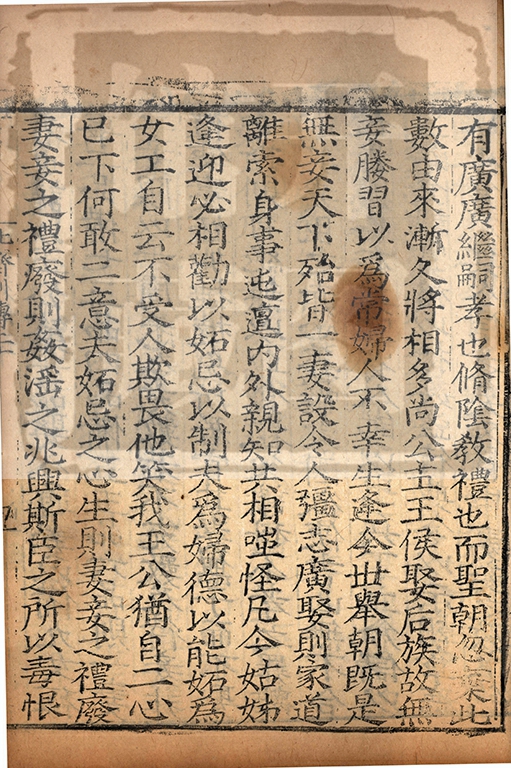 有廣廣繼嗣孝也脩陰教禮也而聖朝忽棄此
數由來漸久將相多尚公主王侯娶后族故無
妾媵習以爲常婦人不幸生逢今世舉朝既是
無妾天下殆皆一妻設令人彊志廣娶則家道
離索身事迍邅內外親知共相嗤怪凡今姑姊
逢迎必相勸以妬忌以制夫爲婦德以能妬爲
女工自云不受人欺畏他笑我王公猶自一心
已下何敢二意夫妬忌之心生則妻妾之禮廢
妻妾之禮廢則姦滛之兆興斯臣之所以毒恨